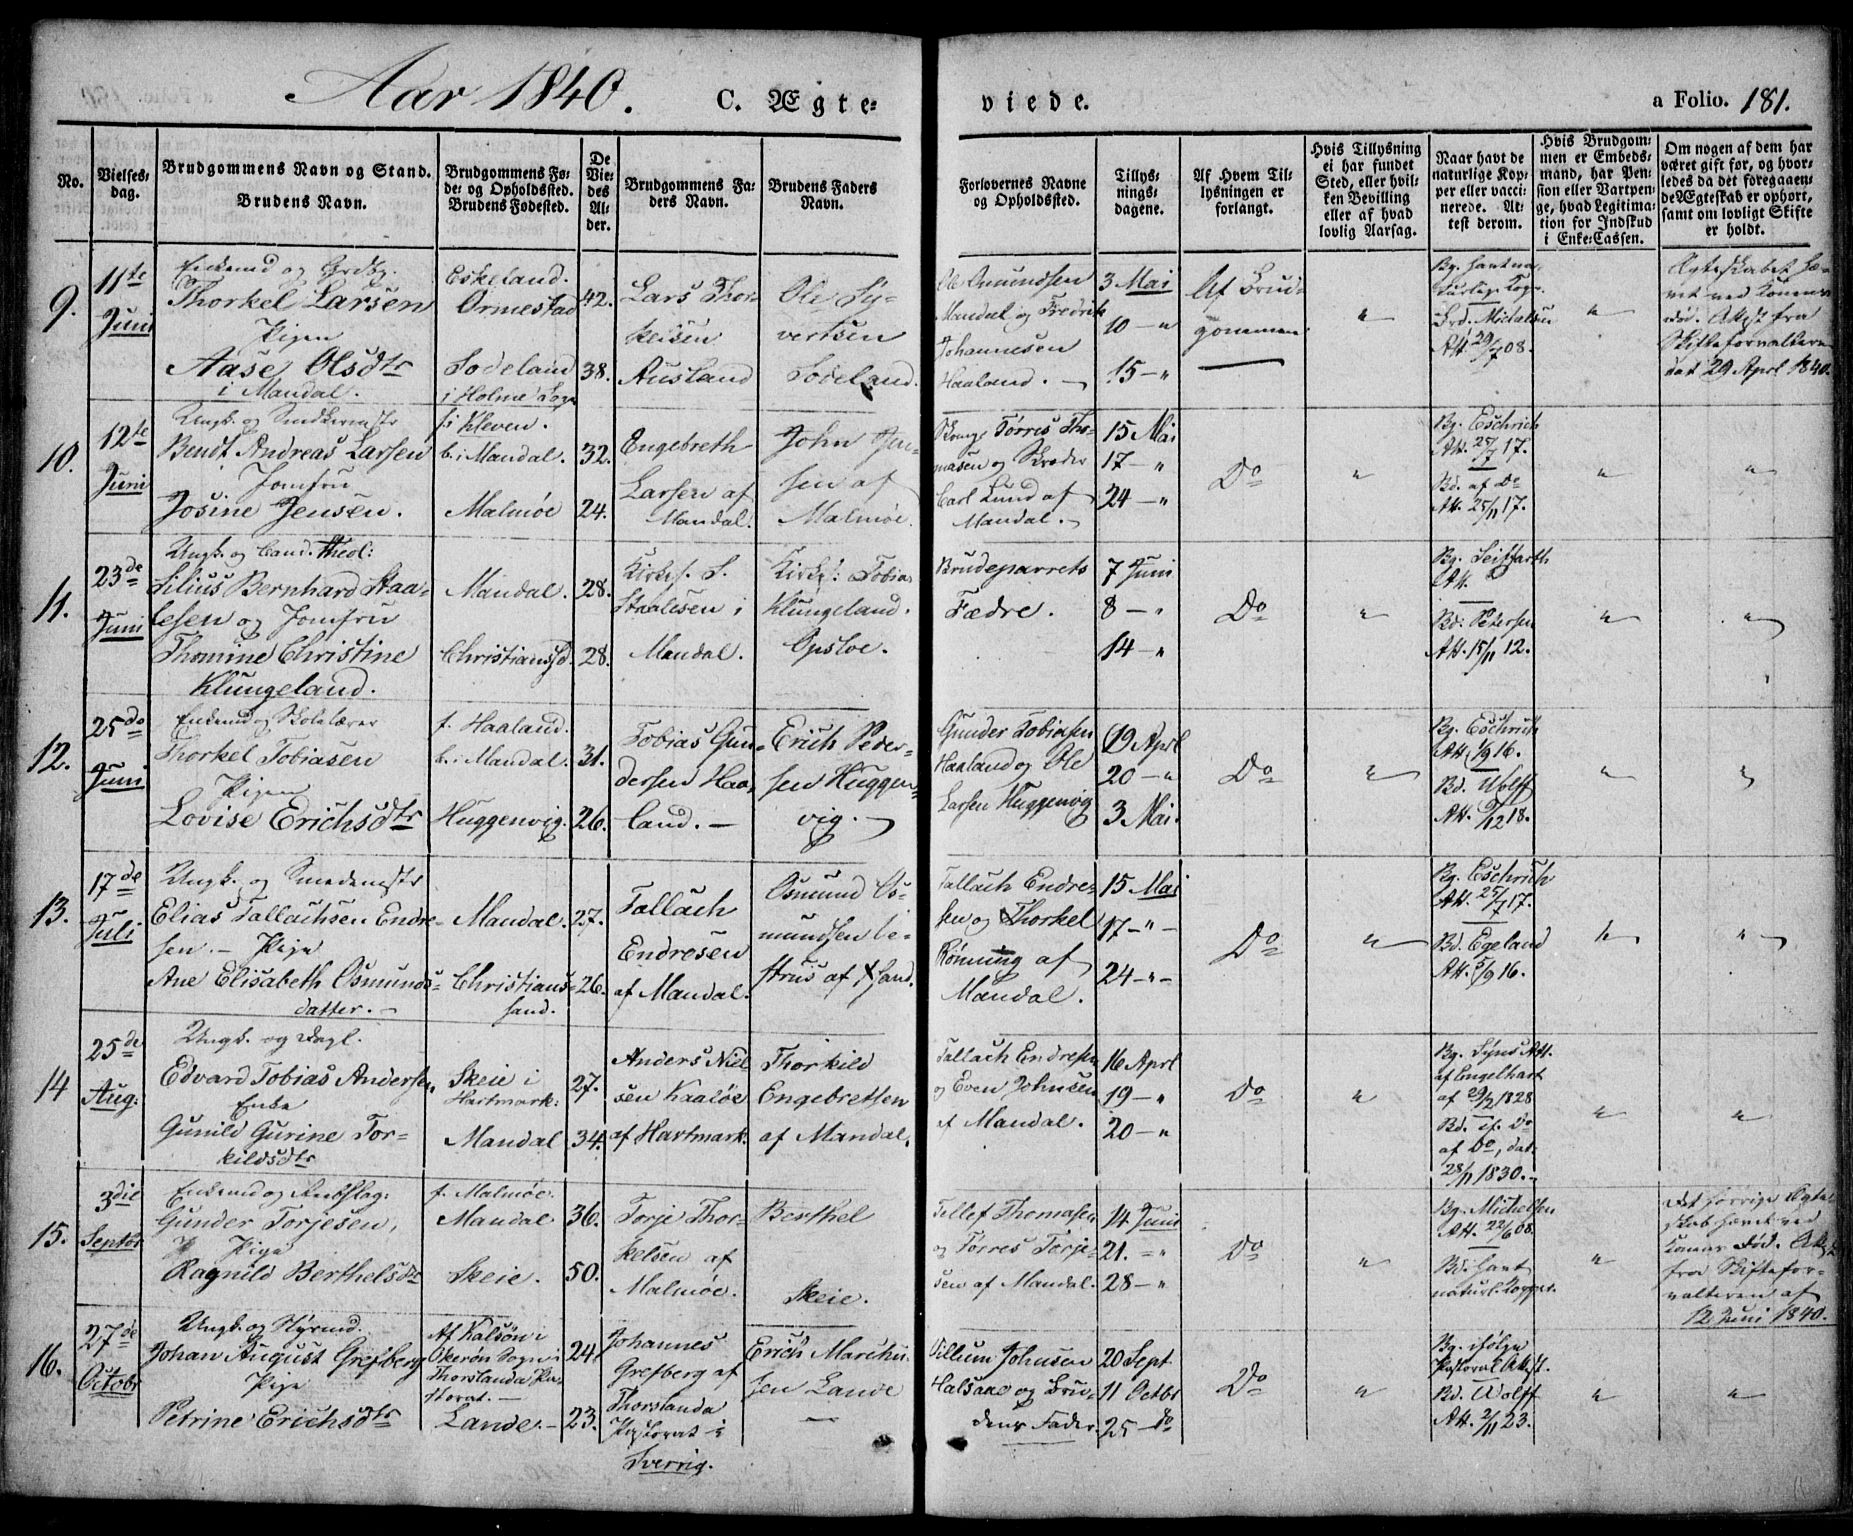 Aar 1840. C. Ægte- viede. a Folio. 181.
No.
Vielses-
dag.
Brudgommens Navn og Stand.
Brudens Navn.
Brudgommens Fø-
de- og Opholdssted.
Brudens Fødested.
De
Vie-
des
Al-
der.
Brudgommens Fa-
ders Navn.
Brudens Faders
Navn.
Forlovernes Navne
og Opholdssted.
Tillys-
nings-
dagene.
Af Hvem Til-
lysningen er
forlangt.
Hvis Tillysning
ei har fundet
Sted, eller hvil-
ken Bevilling
eller af hvad
lovlig Aarsag.
Naar havt de
naturlige Kop-
per eller vacci-
nerede. At-
test derom.
Hvis Brudgom-
men er Embeds-
mand, har Pen-
sion eller Vartpen-
ge, hvad Legitima-
tion for Indskud
i Enke-Cassen.
Om nogen af dem har
været gift før, og hvor-
ledes da det foregaaen-
de Ægteskab er ophørt,
samt om lovligt Skifte
er holdt.
9.
11te
Juni
Enkemd og Grdbr.
Thorkel Larsen
Pigen
Aase Olsdtr
i Mandal.
Eskeland.
Ormestad
Sodeland
i Holme Sogn
42.
38.
Lars Thor-
kelsen
Ausland
Ole Sy-
vertsen
Sodeland.
Ole Amundsen
Mandal og Fredrik
Johannesen
Haaland. -
3 Mai
10 - "
15 - "
Af Brud-
gommen
"
Bg. havt na-
turlige Kop.
Brd. Michalsen
Att. 29/7 08.
"
Ægteskabet hæ-
vet ved Konens
Død. Attest fra
Skifteforvalteren
dat 29 Aprl 1840.
10.
12te
Juni
Ungk. og Snedkermstr
Bendt Andreas Larsen
Jomfru
Josine Jensen.
f. i Kleven.
b. i Mandal.
Malmøe
32.
24.
Engebreth
Larsen af
Mandal.
John Jen-
sen af
Malmøe.
Tørres Tho-
masen og Skræder
Carl Lund af
Mandal. -
15 Mai
17 - "
24 - "
Do
"
Bg. Eschrich
Att. 25/7 17.
Bd. af Do
Att. 25/11 17.
"
"
11.
23de
Juni
Ungk. og Cand. Theol:
Silius Bernhard Staa-
lesen og Jomfru
Thomine Christine
Klungeland.
Mandal.
Christiansd.
28.
28.
Kirkes. S.
Staalesen i
Mandal.
Kirkes: Tobias
Klungeland.
Opsloe.
Brudeparrets
Fædre.
7 Juni
8 - "
14 - "
Do
"
Bg. Seiffarth
Att.
Bd. Petersen
Att. 15/11 12.
"
"
12.
25de
Juni
Enkemd og Skolelærer
Thorkel Tobiasen
Pigen
Lovise Erichsdtr
f. Haaland.
b. i Mandal.
Huggenvig.
31.
26.
Tobias Gun-
dersen Haa-
land. -
Erich Peder-
sen Huggen-
vig. -
Gunder Tobiasen
Haaland og Ole
Larsen Huggenvig
19 Aprl
20 - "
3 Mai.
Do
"
Bg. Eschrich
Att. 1/9 16.
Bd. Wolff
Att. 9/12 18.
"
"
13.
17de
Juli
Ungk. og Smedemstr
Elias Tallachsen Endre-
sen. - Pige
Ane Elisabeth Osmunds-
datter. -
Mandal.
Christians-
sand.
27.
26.
Tallach
Endresen
af Mandal.
Osmund Os-
mundsen Le-
strus af X sand.
Tallach Endre-
sen og Thorkel
Rønning af
Mandal.
15 Mai
17 - " -
24 - " -
Do
"
Bg. Eschrich
Att. 25/7 17.
Bd. Egeland
Att. 5/9 16.
"
"
14
25de
Aug:
Ungk. og Dagl.
Edvard Tobias Andersen,
Enke
Gunild Gurine Tor-
kildsdtr
Skeie i
Hartmark:
Mandal
27.
34.
Anders Niel
sen Kaaløe
af Hartmark.
Thorkild
Engebretsen
af Mandal.
Tallach Endresen
og Even Johnsen
af Mandal.
16 Aprl
19 - "
20 - "
Do
"
Bg. Syns Att.
af Engelhart
af 29/2 1828
Bd. if. Do
af Do, dat.
28/11 1830.
"
"
15.
3die
Septbr
Enkemd og Arb:
Gunder Torjesen,
Pige
Ragnild Berthelsdtr
f. Malmøe.
Mandal
Skeie.
36.
50.
Torje Thor-
kelsen af
Malmøe.
Berthel
Skeie.
Tellef Thomasen
og Tørres Torje-
sen af Mandal.
14 Juni
21. - "
28 - "
Do
"
Bg. Michelsen
Att. 22/6 08.
Bd. havt
naturl. Kopper.
"
Det forrige Ægte-
skab hævet ved
Konens Død. Attest
fra Skiftefor-
valteren af
12 Juni 1840.
16.
27de
Octobr
Ungk. og Styrmd.
Johan August Grefberg
Pige
Petrine Erichsdtr
Af Kalsøn i
Økerøn Sogn i
Thorslanda Pa-
storat. -
Lande. -
24.
23.
Johannes
Grefberg af
Thorslanda
Pastorat i
Sverrig.
Erich Mathi-
sen Lande
Villum Johnsen
Halsaae og Bru-
dens Fader.
20 Sept
11 Octbr
25 - Do
Do
"
Bg. ifølge
Pastoral Attest.
Bd. Wolff
Att. 2/11 23.
"
"